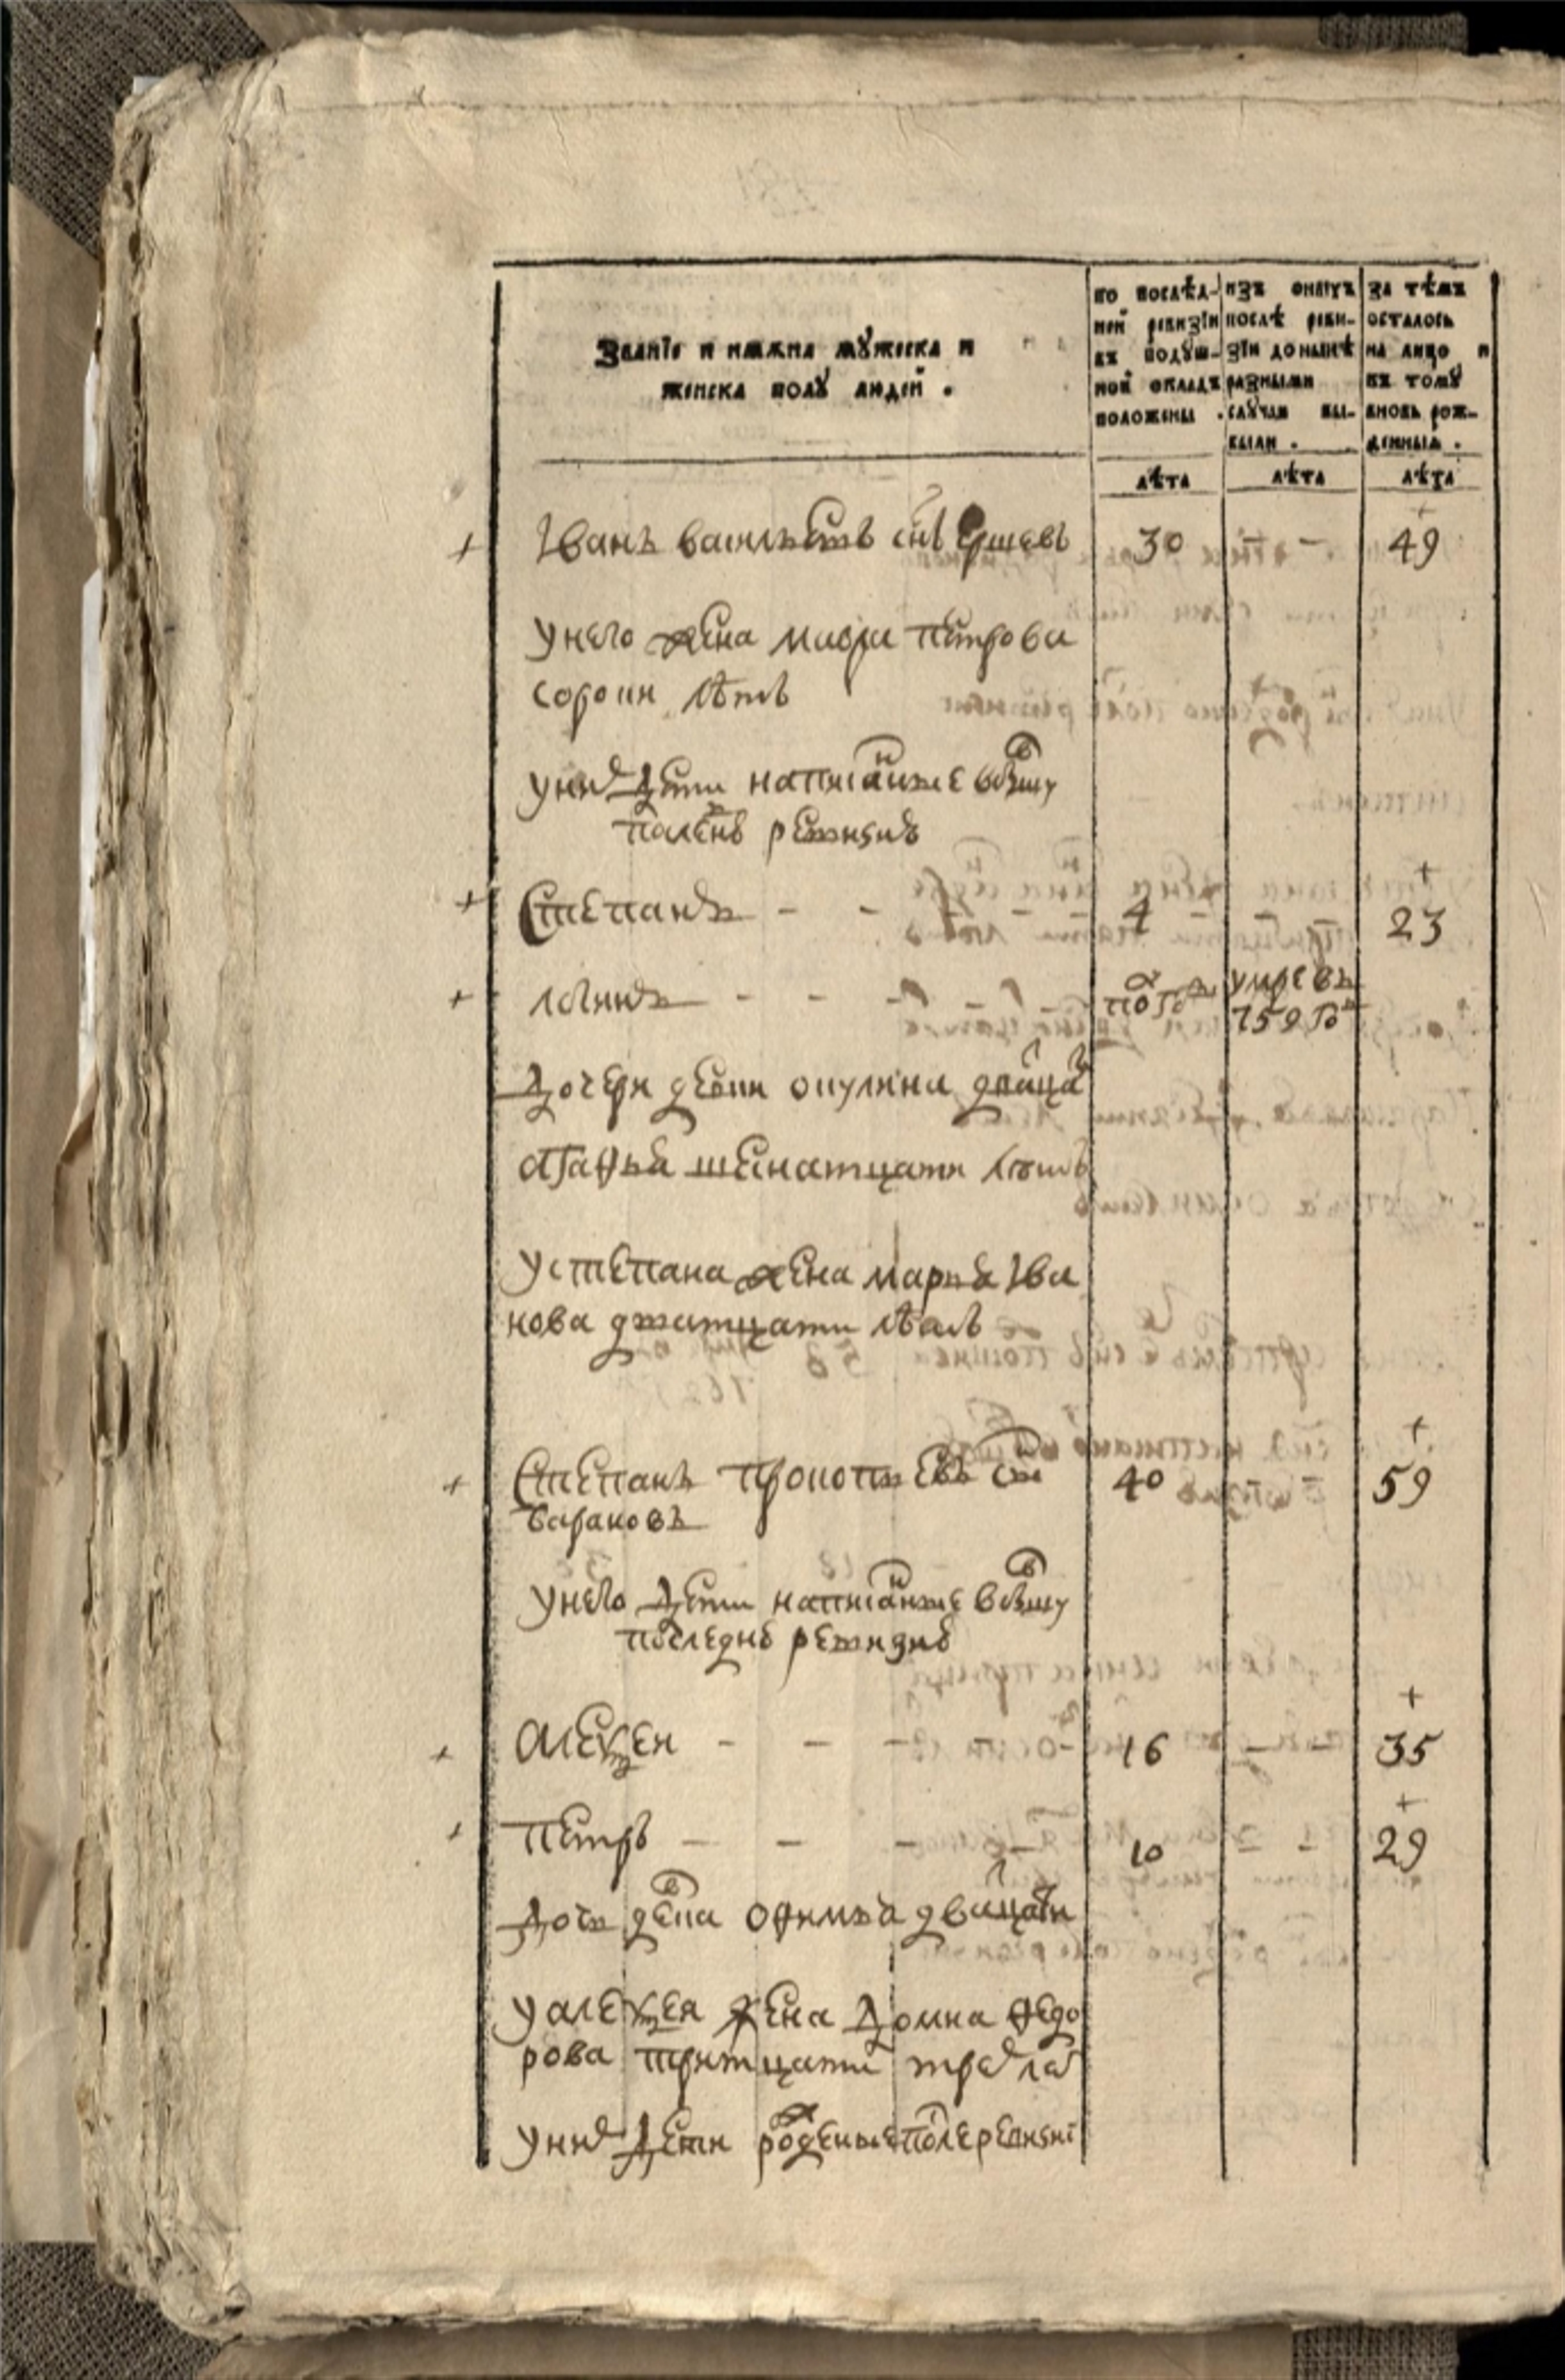 Званїе и имяна мꙋжеска и
женска полꙋ людей .
по послѣд-
ней ревизїи
въ подꙋш-
ной окладъ
положены .
изъ оныхъ
послѣ реви-
зїи до нынѣ
разными
слꙋчаи вы-
были .
за тѣмъ
осталось
на лицо и
къ томꙋ
вновь рож-
денныя .
лѣта лѣта лѣта
Іванъ васильевъ снъ Ершевъ 30 - 49
унего жена марѳа петрова
сорокн лѣтъ
унихъ дети написаные вбывшу
Степанъ - - 4 23
логинъ - - - полгода умре въ 759 год
Дочери девки окулина двацат
агафья шеснатцати летъ
устепана жена марья Іва
нова дватцати лѣтъ
Степанъ прокопьевъ снъ 40 59
барановъ
унего дети написаные вбывшу
последнею ревизию
Алеѯеи - - - 16 - - 35
Петръ - - - 10 - 29
дочь девка офимья двацати
уалеѯея жена домна федо
рова тритцати трех лет
унихъ дети рожденые после ревизиї